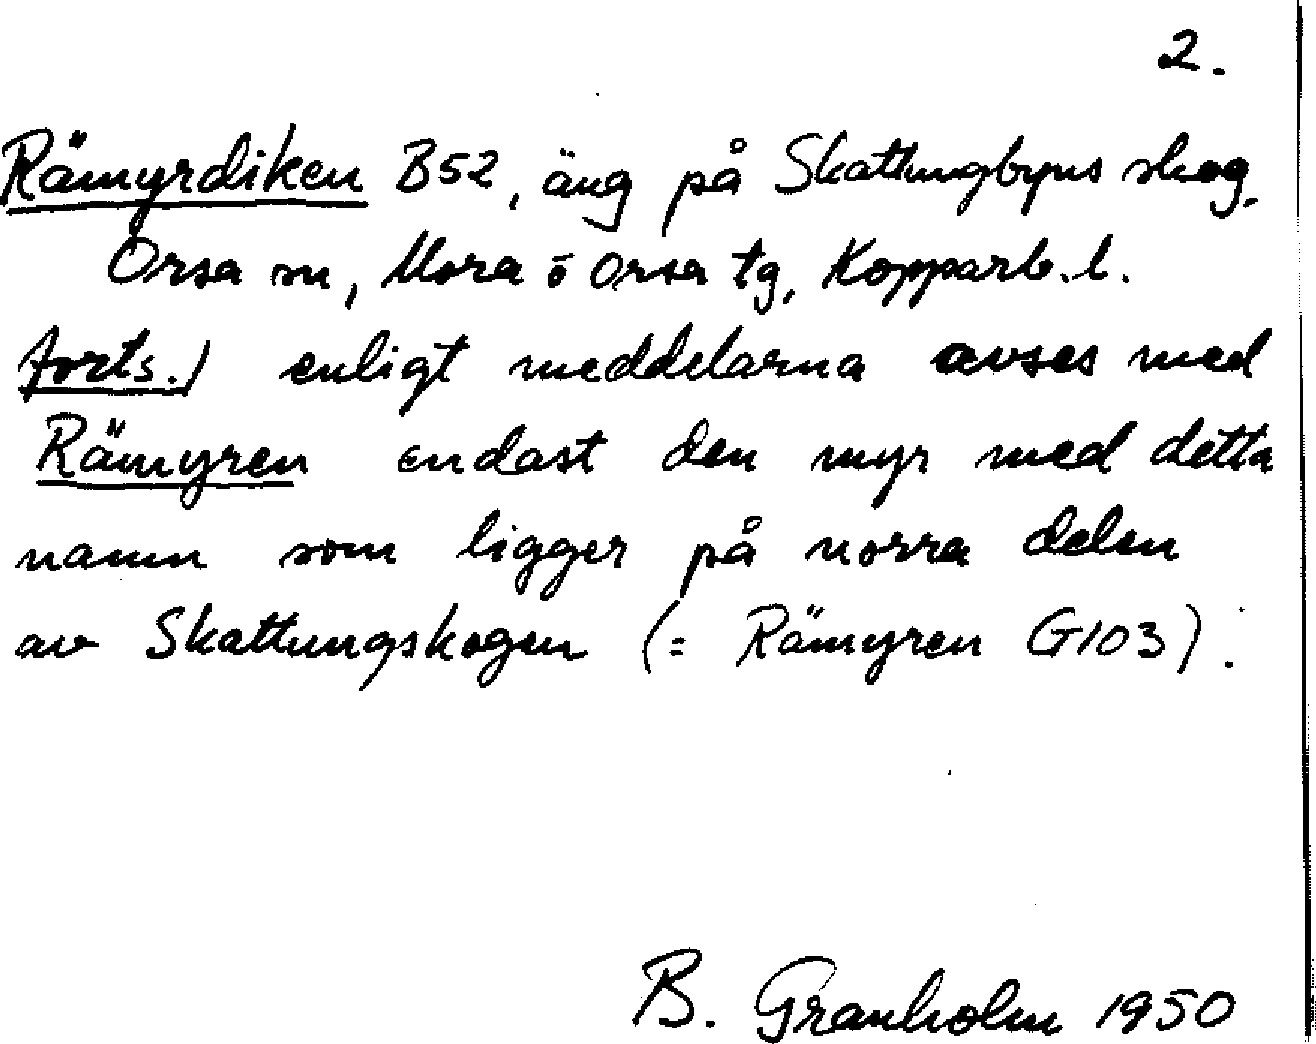 2.
Rämyrdiken B52, äng på Skattungbyns skog,
Orsa sn, Mora o Orsa tg, Kopparb. l.
forts.) enligt meddelarna avses med
Rämyren endast den myr med detta
namn som ligger på norra delen
av Skattungskogen (= Rämyren G103).
B. Granholm 1950